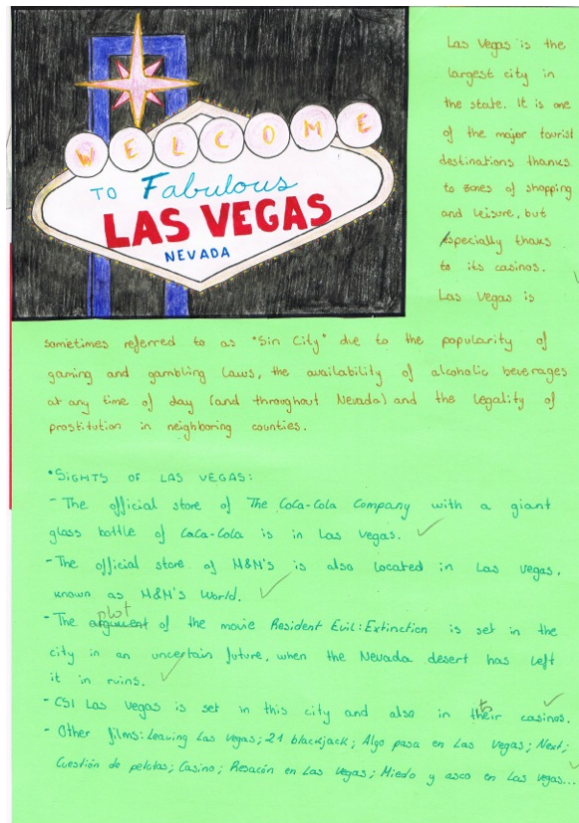 WELCOME
TO Fabulous
LAS VEGAS
NEVADA
Las Vegas is the
largest city in
the state. It is one
of the major tourist
destinations thanks
to zones of shopping
and leisure, but
especially thaks
to its casinos.
Las Vegas is
sometimes referred to as "Sin City" due to the popularity of
gaming and gambling laws, the availability of alcoholic beverages
at any time of day (and throughout Nevada) and the legality of
prostitution in neighboring counties.
•SIGHTS OF LAS VEGAS:
- The official store of The Coca-Cola Company with a giant
glass bottle of CoCa-Cola is in Las Vegas.
- The official store of M&M's is also located in Las Vegas,
known as M&M's World.
plot
- The argument of the movie Resident Evil: Extinction is set in the
city in an uncertain future, when the Nevada desert has left
it in ruins.
- CSI Las Vegas is set in this city and also in their casinos.
- Other films: Leaving Las Vegas; 21 blackjack; Algo pasa en Las Vegas; Next;
Cuestión de pelotas; Casino; Resacón en Las Vegas; Miedo y asco en Las Vegas...